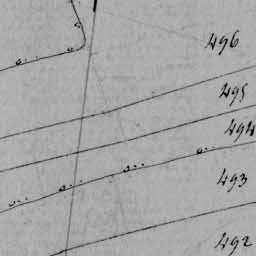 496
495
494
493
492